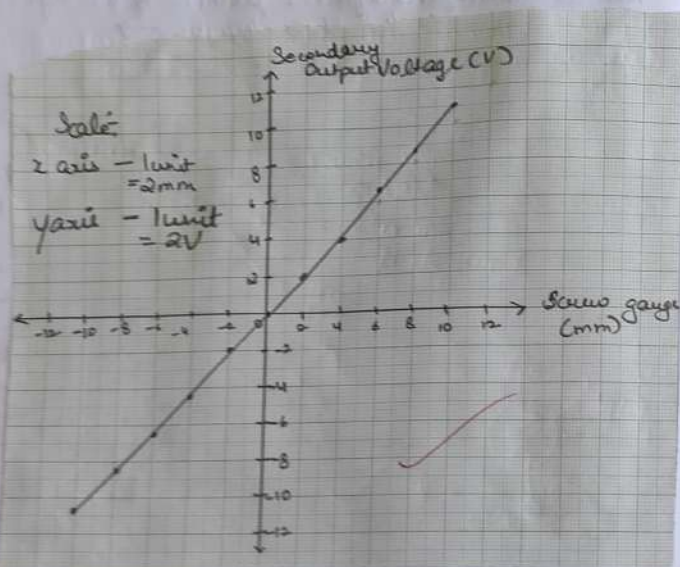 Secondary
Output Voltage (V)
Scale:
x axis - 1 unit
= 2mm
y axis - 1 unit
= 2V
12
10
8
6
4
2
-12 -10 -8 -6 -4 -2 0 2 4 6 8 10 12
Screw gauge
(mm)
-2
-4
-6
-8
-10
-12